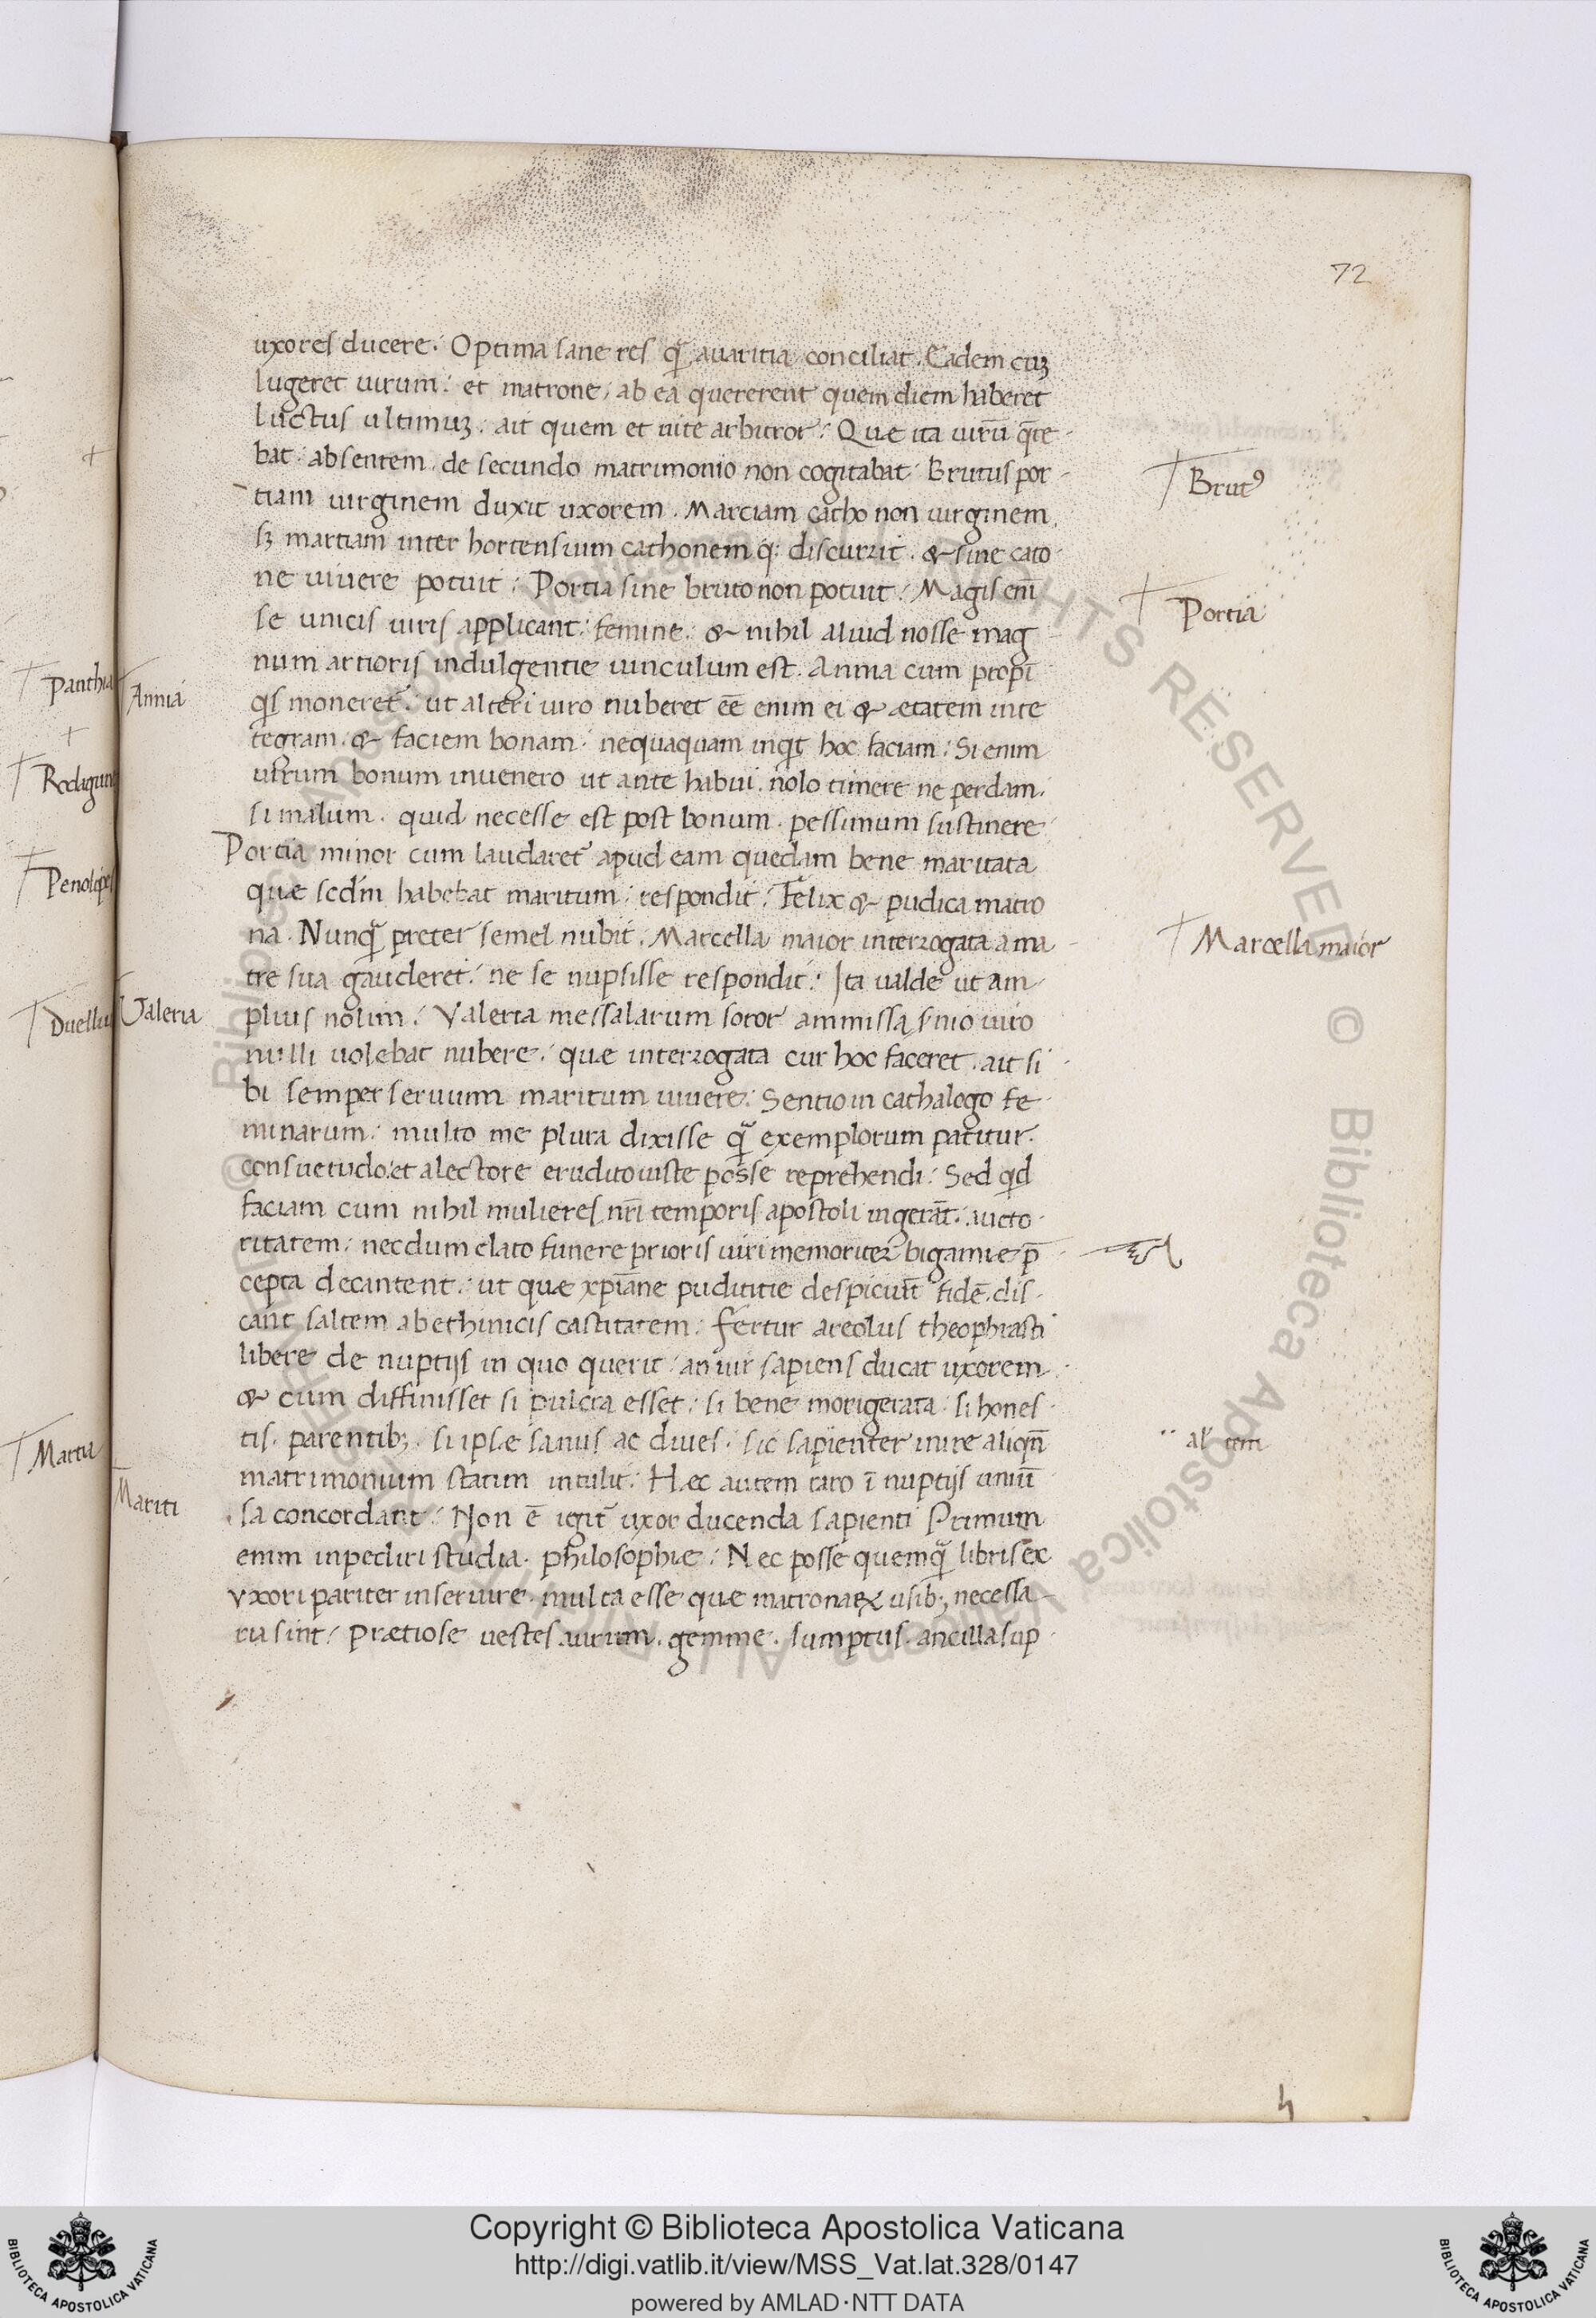 72
uxores ducere. Optima sane res q̃ auaritia conciliat. Eadem cuꝫ
lugeret uirum: et matrone, ab ea quererent quem diem haberet
luctus ultimuꝫ. ait quem et uite arbitror. Quæ ita uirũ q̃re
bat absentem. de secundo matrimonio non cogitabat. Brutus por
tiam uirginem duxit uxorem. Marciam catho non uirginem.
sꝫ martiam inter hortensium cathonem q; discurrit. & sine cato
ne uiuere potuit. Portia sine bruto non potuit. Magis eni̅
se unicis uiris applicant: femine. & nihil aliud nosse mag
num artioris indulgentie uinculum est. Annia cum propi̅
q͛s moneret̃. ut alteri uiro nuberet ee̅ enim ei & ætatem inte
tegram. & faciem bonam. nequaquam inq͛t hoc faciam. Si enim
uirum bonum inuenero ut ante habui. nolo timere ne perdam.
si malum. quid necesse est post bonum. pessimum sustinere
Portia minor cum laudaret̃ apud eam quedam bene maritata
quæ scdm̅ habebat maritum. respondit. Felix & pudica matro
na. Nunq̃ preter semel nubit. Marcella maior interrogata a ma
tre sua gauderet. ne se nupsisse respondit. Ita ualde ut am
plius nolim. Valeria messalarum soror ammissa suio uiro
nulli uolebat nubere. quæ interrogata cur hoc faceret. ait si
bi semper seruum maritum uiuere. Sentio in cathalogo fe
minarum. multo me plura dixisse q̃ exemplorum patitur.
consuetudo. et a lectore erudito uiste posse reprehendi. Sed q͛d
faciam cum nihil mulieres nr̅i temporis apostoli ingerãt. aucto
ritatem. necdum elato funere prioris uiri memoriter bigamie p̅
cepta decantent. ut quæ xp̅iane pudititie despiciũt fidẽ. dis
cant saltem ab ethinicis castitatem. Fertur areolus theophrasti
libere de nuptijs in quo querit. an uir sapiens ducat uxorem.
& cum diffinisset si pulcra esset. si bene morigerata. si hones
tis. parentibꝫ. si ipse sanus ac diues. sic sapienter inire aliqñ
matrimonium statim intulit. Hæc autem raro i̅ nuptijs uniũ
sa concordant. Non e̅ igit̃ uxor ducenda sapienti Primum
enim inpediri studia. philosophie. Nec posse quemq̃ libris ex
uxori pariter inseruire. multa esse quæ matronaꝝ usibꝫ necessa
ria sint. Prætiose uestes. uirum. gemme. sumptus. ancilla sup
Brutꝰ
Portia
Marcella maior
al' rem
Annia
Valeria
Mariti
Duelliu
Copyright © Biblioteca Apostolica Vaticana
http://digi.vatlib.it/view/MSS_Vat.lat.328/0147
powered by AMLAD·NTT DATA
BIBLIOTECA APOSTOLICA VATICANA
BIBLIOTECA APOSTOLICA VATICANA